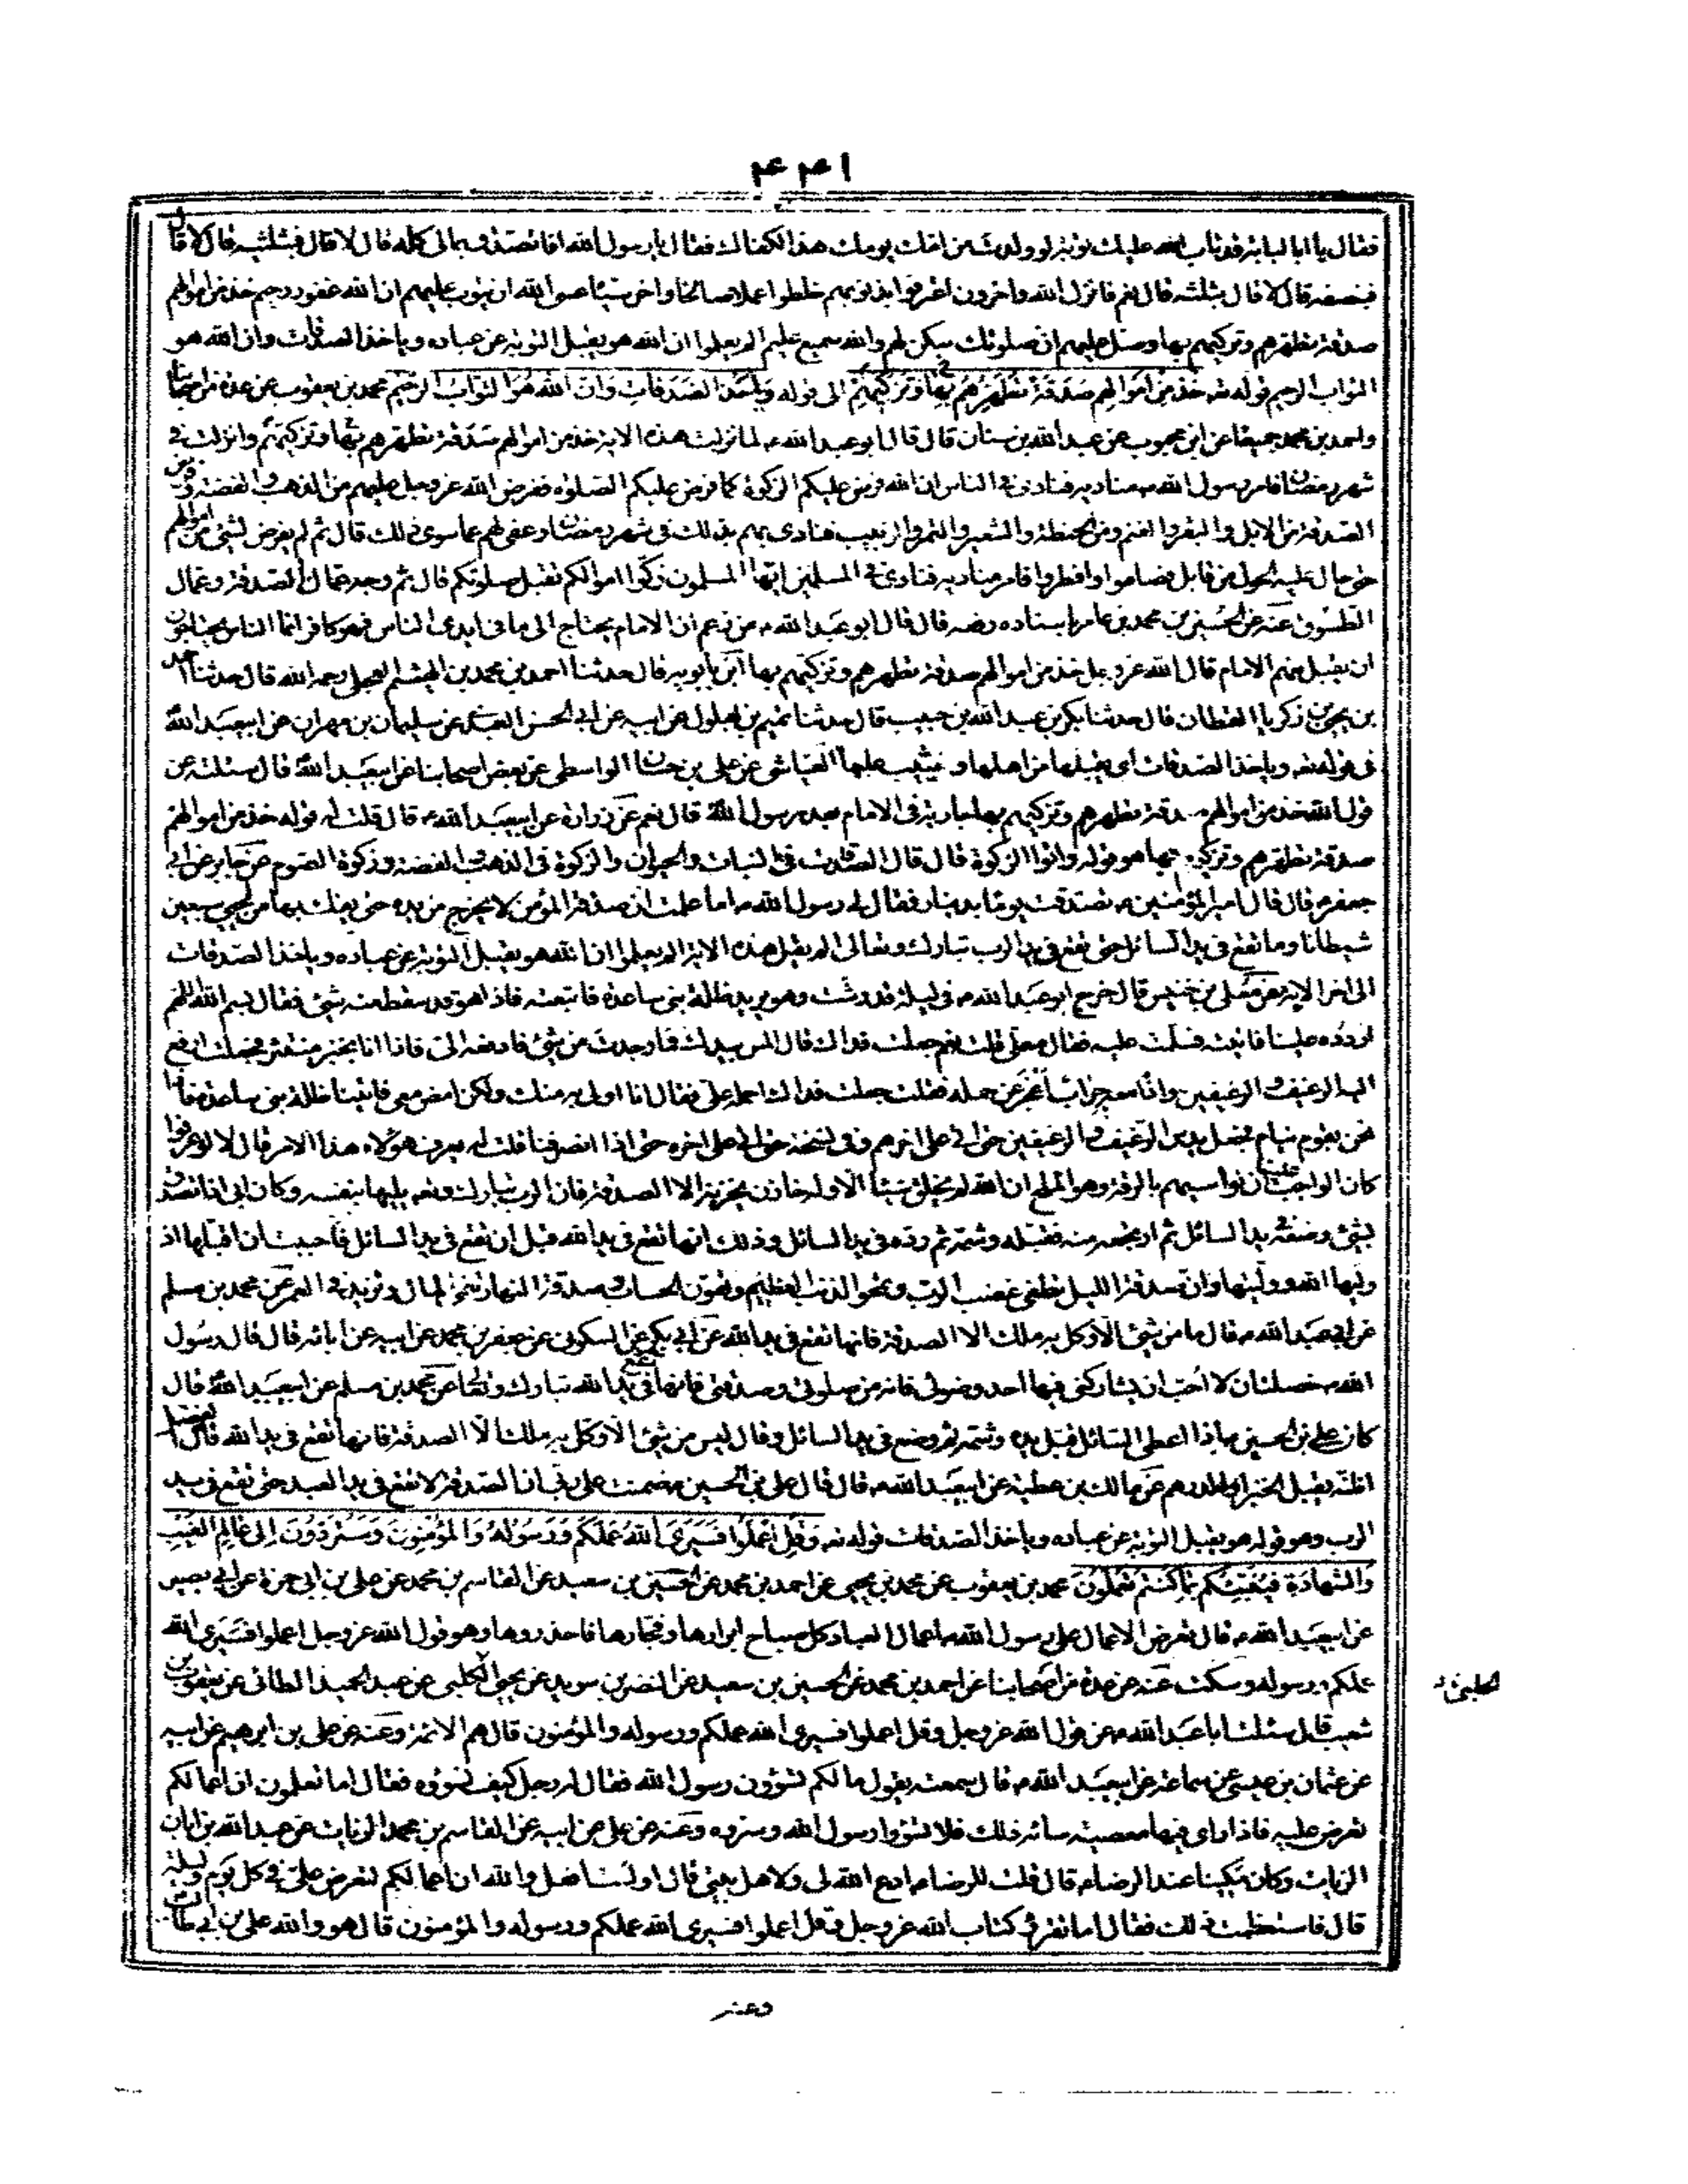 ۴۴۱
فقال يا ابا لبابة قد تاب الله عليك توبة لو ولدت من امك يومك هذا لكفاك فقال يا رسول الله افاتصدق بمالى كله قال لا قال فبثلثيه قال لا قال
فبنصفه قال لا قال بثلثه قال نعم فانزل الله واخرون اعترفوا بذنوبهم خلطوا عملا صالحا واخر سيئا عسى الله ان يتوب عليهم ان الله غفور رحيم خذ من اموالهم
صدقة تطهرهم وتزكيهم بها وصل عليهم ان صلوتك سكن لهم والله سميع عليم الم يعلموا ان الله هو يقبل التوبة عن عباده وياخذ الصدقات وان الله هو
التواب الرحيم قوله تعه خذ من اموالهم صدقة تطهرهم بها وتزكيهم الى قوله وياخذ الصدقات وان الله هو التواب الرحيم محمد بن يعقوب عن عدة من اصحابنا
واحمد بن محمد جميعا عن ابن محبوب عن عبد الله بن سنان قال قال ابو عبد الله ع لما نزلت هذه الاية خذ من اموالهم صدقة تطهرهم بها وتزكيهم وانزلت فى
شهر رمضان فامر رسول الله ص مناديه فنادى فى الناس ان الله فرض عليكم الزكوة كما فرض عليكم الصلوة ففرض الله عز وجل عليهم من الذهب والفضة وفرض
الصدقة من الابل والبقر والغنم ومن الحنطة والشعير والتمر والزبيب فنادى بهم بذلك فى شهر رمضان وعفى لهم عما سوى ذلك قال ثم لم يفرض لشئ من اموالهم
حتى حال عليه الحول من قابل فصاموا وافطروا فامر مناديه فنادى فى المسلمين ايها المسلمون زكوا اموالكم تقبل صلوتكم قال ثم وجه عمال الصدقة وعمال
الطسوق عنه عن الحسين بن محمد بن عامر باسناده رفعه قال قال ابو عبد الله ع من زعم ان الامام يحتاج الى ما فى ايدى الناس فهو كافر انما الناس يحتاجون
ان يقبل منهم الامام قال الله عز وجل خذ من اموالهم صدقة تطهرهم وتزكيهم بها ابن بابويه قال حدثنا احمد بن محمد بن الهيثم العجلى رحمه الله قال حدثنا احمد
بن يحيى بن زكريا القطان قال حدثنا بكر بن عبد الله بن حبيب قال حدثنا تميم بن بهلول عن ابيه عن ابى الحسن العبدى عن سليمان بن مهران عن ابيعبد الله
فى قوله تعه وياخذ الصدقات اى يقبلها من اهلها ويثيب عليها العياشى عن على بن حسان الواسطى عن بعض اصحابنا عن ابيعبد الله قال سئلته عن
قول الله خذ من اموالهم صدقة تطهرهم وتزكيهم بها جارية فى الامام بعد رسول الله قال نعم عن زرارة عن ابيعبد الله ع قال قلت له قوله خذ من اموالهم
صدقة تطهرهم وتزكيهم بها هو قوله واتوا الزكوة قال قال الصدقات فى النبات والحيوان والزكوة فى الذهب والفضة وزكوة الصوم عن جابر عن ابى
جعفر ع قال قال امير المؤمنين ع تصدقت يوما بدينار فقال لى رسول الله ص اما علمت ان صدقة المؤمن لا يخرج من يده حتى يفك بها من لحيى سبعين
شيطانا وما تقع فى يد السائل حتى تقع فى يد الرب تبارك وتعالى الم يقل هذه الاية الم يعلموا ان الله هو يقبل التوبة عن عباده وياخذ الصدقات
الى اخر الاية عن معلى بن خنيس قال خرج ابو عبد الله ع فى ليلة قد رشت وهو يريد ظلة بنى ساعدة فاتبعته فاذا هو قد سقط منه شئ فقال بسم الله اللهم
اردده علينا فاتيته فسلمت عليه فقال معلى قلت نعم جعلت فداك قال التمس بيدك فما وجدت من شئ فادفعه الى فاذا انا بخبز منتشر فجعلت ادفع
اليه الرغيف والرغيفين واذا معه جراب اعجز عن حمله فقلت جعلت فداك احمله على فقال انا اولى به منك ولكن امض معى فاتينا ظلة بنى ساعدة فاذا
نحن بقوم نيام فجعل يدس الرغيف والرغيفين حتى اتى على اخرهم وفى نسخة حتى اتى على اخره حتى اذا انصرفنا قلت له يعرف هؤلاء هذا الامر قال لا لو عرفوا
كان الواجب علينا ان نواسيهم بالدقة وهو الملح ان الله لم يخلق شيئا الا وله خازن يخزنه الا الصدقة فان الرب تبارك وتعه يليها بنفسه وكان ابى اذا تصدق
بشئ وضعه فى يد السائل ثم ارتجعه منه فقبله وشمه ثم رده فى يد السائل وذلك انها تقع فى يد الله قبل ان تقع فى يد السائل فاحببت ان اقبلها اذ
وليها الله ووليتها وان صدقة الليل تطفى غضب الرب وتمحو الذنب العظيم وتهون الحساب وصدقة النهار تنمى المال وتزيد فى العمر عن محمد بن مسلم
عن ابى عبد الله ع قال ما من شئ الا وكل به ملك الا الصدقة فانها تقع فى يد الله عن ابى بكر عن السكونى عن جعفر بن محمد عن ابيه عن ابائه قال قال رسول
الله ص خصلتان لا احب ان يشاركنى فيها احد وضوئى فانه من صلوتى وصدقتى فانها تقع فى يد الله تبارك وتعالى عن محمد بن مسلم عن ابيعبد الله قال
كان على بن الحسين ع اذا اعطى السائل قبل يده وشمه ثم وضع فى يد السائل وقال ليس من شئ الا وكل به ملك الا الصدقة فانها تقع فى يد الله قال الفضيل
اظنه يقبل الخبز او الدرهم عن مالك بن عطية عن ابيعبد الله ع قال قال على بن الحسين ع ضمنت على ربى ان الصدقة لا تقع فى يد العبد حتى تقع فى يد
الرب وهو قوله هو يقبل التوبة عن عباده وياخذ الصدقات قوله تعه وَقُلِ اعْمَلُوا فَسَيَرَى اللهُ عَمَلَكُمْ وَرَسُولُهُ وَالْمُؤْمِنُونَ وَسَتُرَدُّونَ اِلى عَالِمِ الْغَيْبِ
وَالشَّهَادَةِ فَيُنَبِّئُكُمْ بِمَا كُنْتُمْ تَعْمَلُونَ محمد بن يعقوب عن محمد بن يحيى عن احمد بن محمد عن الحسين بن سعيد عن القاسم بن محمد عن على بن ابى حمزة عن ابى بصير
عن ابيعبد الله ع قال تعرض الاعمال على رسول الله ص اعمال العباد كل صباح ابرارها وفجارها فاحذروها وهو قول الله عز وجل اعملوا فسيرى الله
عملكم ورسوله وسكت عنه عن عدة من اصحابنا عن احمد بن محمد عن الحسين بن سعيد عن النضر بن سويد عن يحيى الكلبى عن عبد الحميد الطائى عن يعقوب بن
الحلبى
شعيب قال سئلت ابا عبد الله ع عن قول الله عز وجل وقل اعملوا فسيرى الله عملكم ورسوله والمؤمنون قال هم الائمة وعنه عن على بن ابرهيم عن ابيه
عن عثمان بن عيسى عن سماعة عن ابيعبد الله ع قال سمعته يقول ما لكم تسوؤن رسول الله فقال له رجل كيف نسوؤه فقال اما تعلمون ان اعمالكم
تعرض عليه فاذا راى فيها معصية سائه ذلك فلا تسوؤا رسول الله وسروه وعنه عن على عن ابيه عن القاسم بن محمد الزيات عن عبد الله بن ابان
الزيات وكان مكينا عند الرضا ع قال قلت للرضا ع ادع الله لى ولاهل بيتى قال اولست افعل والله ان اعمالكم لتعرض على فى كل يوم وليلة
قال فاستعظمت ذلك فقال اما تقرء كتاب الله عز وجل وقل اعملوا فسيرى الله عملكم ورسوله والمؤمنون قال هو والله على بن ابى طالب
وعنه